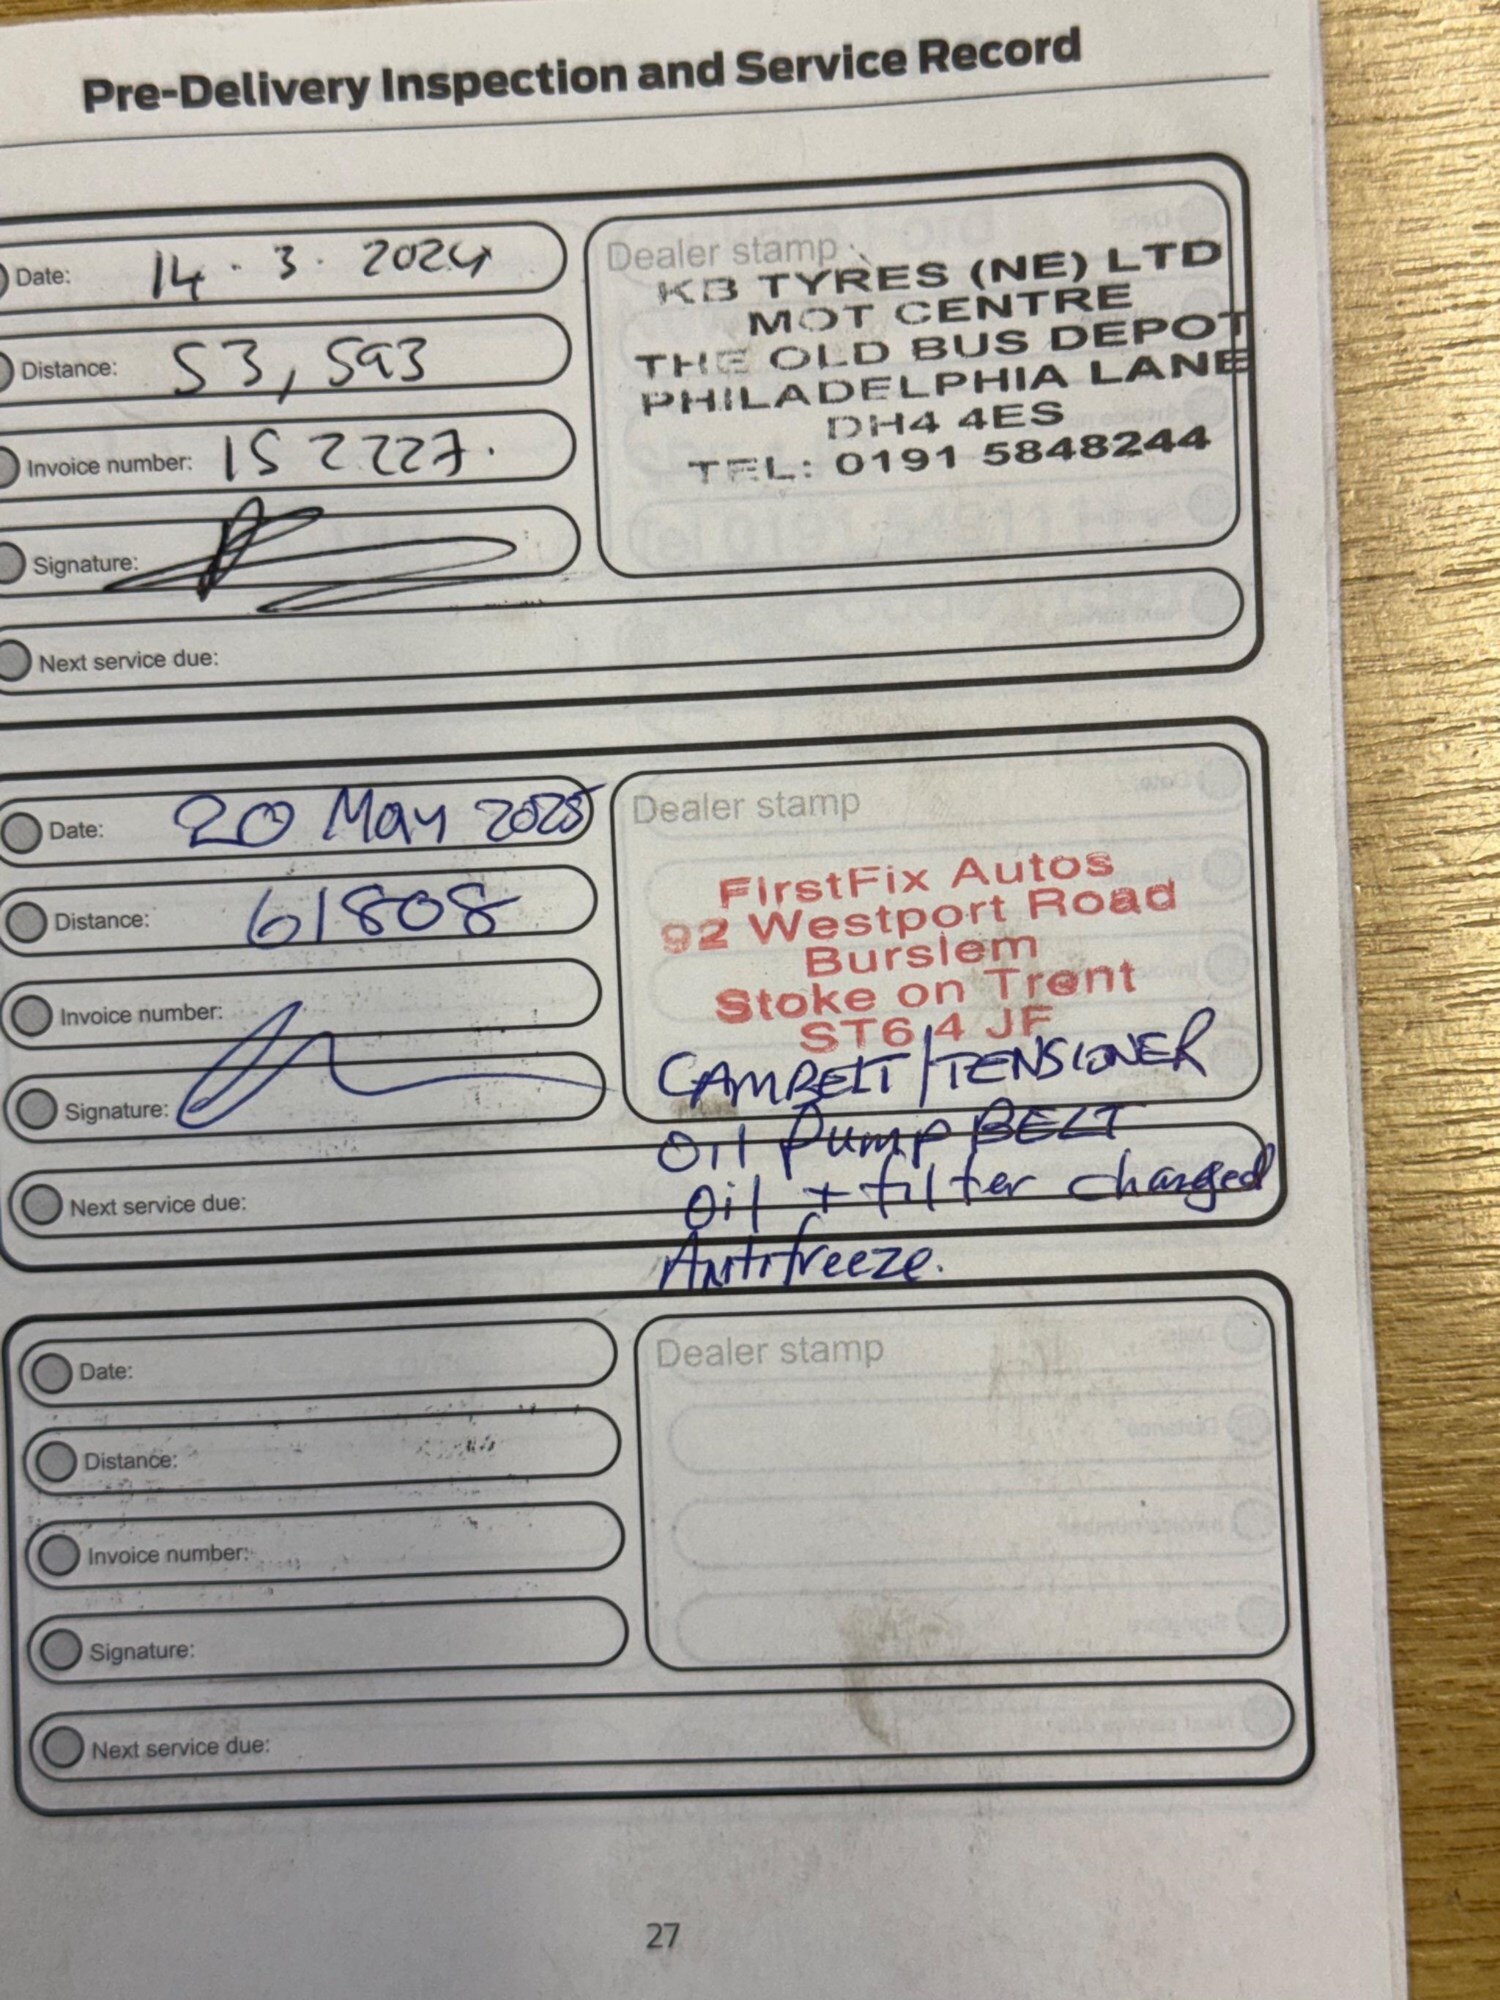 Pre-Delivery Inspection and Service Record
Date: 14 . 3 . 2024
Distance: 53,593
Invoice number: 152227.
Signature:
Next service due:
Dealer stamp
KB TYRES (NE) LTD
MOT CENTRE
THE OLD BUS DEPOT
PHILADELPHIA LANE
DH4 4ES
TEL: 0191 5848244
Date: 20 May 2025
Distance: 61808
Invoice number:
Signature:
Next service due:
Dealer stamp
FirstFix Autos
92 Westport Road
Burslem
Stoke on Trent
ST6 4 JF
CAMBELT/TENSIONER
Oil Pump BELT
Oil + filter changed
Antifreeze.
Date:
Distance:
Invoice number:
Signature:
Next service due:
Dealer stamp
27